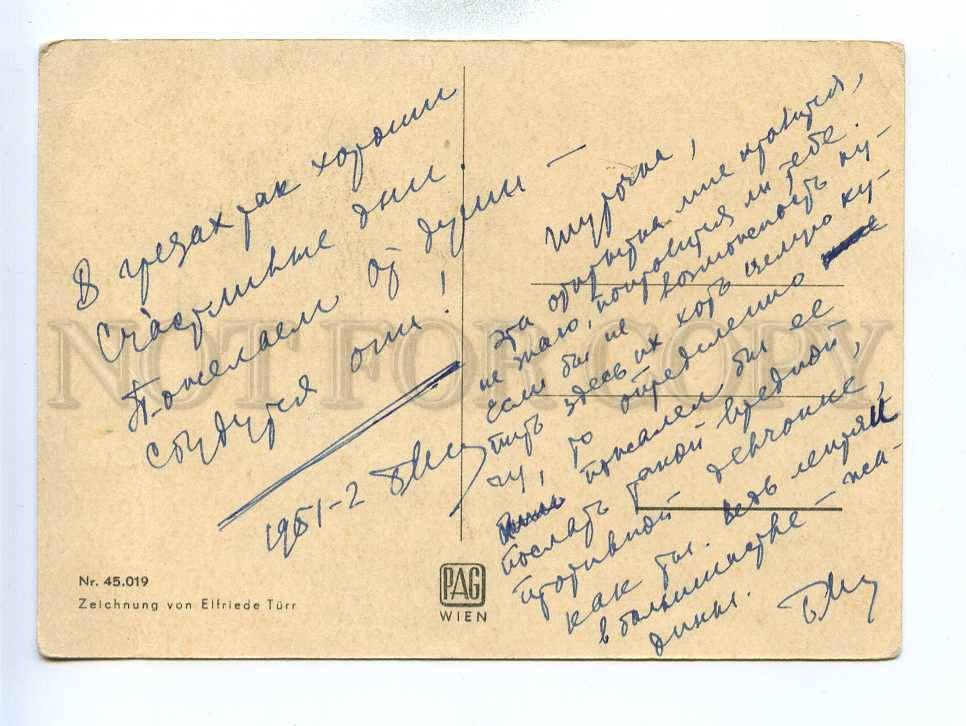 В грезах так хороши
Счастливые дни.
Пожелаем от души —
сбудутся они!
1951-2
Шурочка,
эта открытка мне нравится,
не знаю, понравится ли тебе.
Если бы не возможность ку-
пить здесь их хоть целую ку-
чу, то определенно
пожалел бы ее
послать такой вредной,
противной девчонке,
как ты. Ведь лентяи
в большинстве — жа-
дины.
Nr. 45.019
Zeichnung von Elfriede Türr
PAG
WIEN
NOT FOR COPY